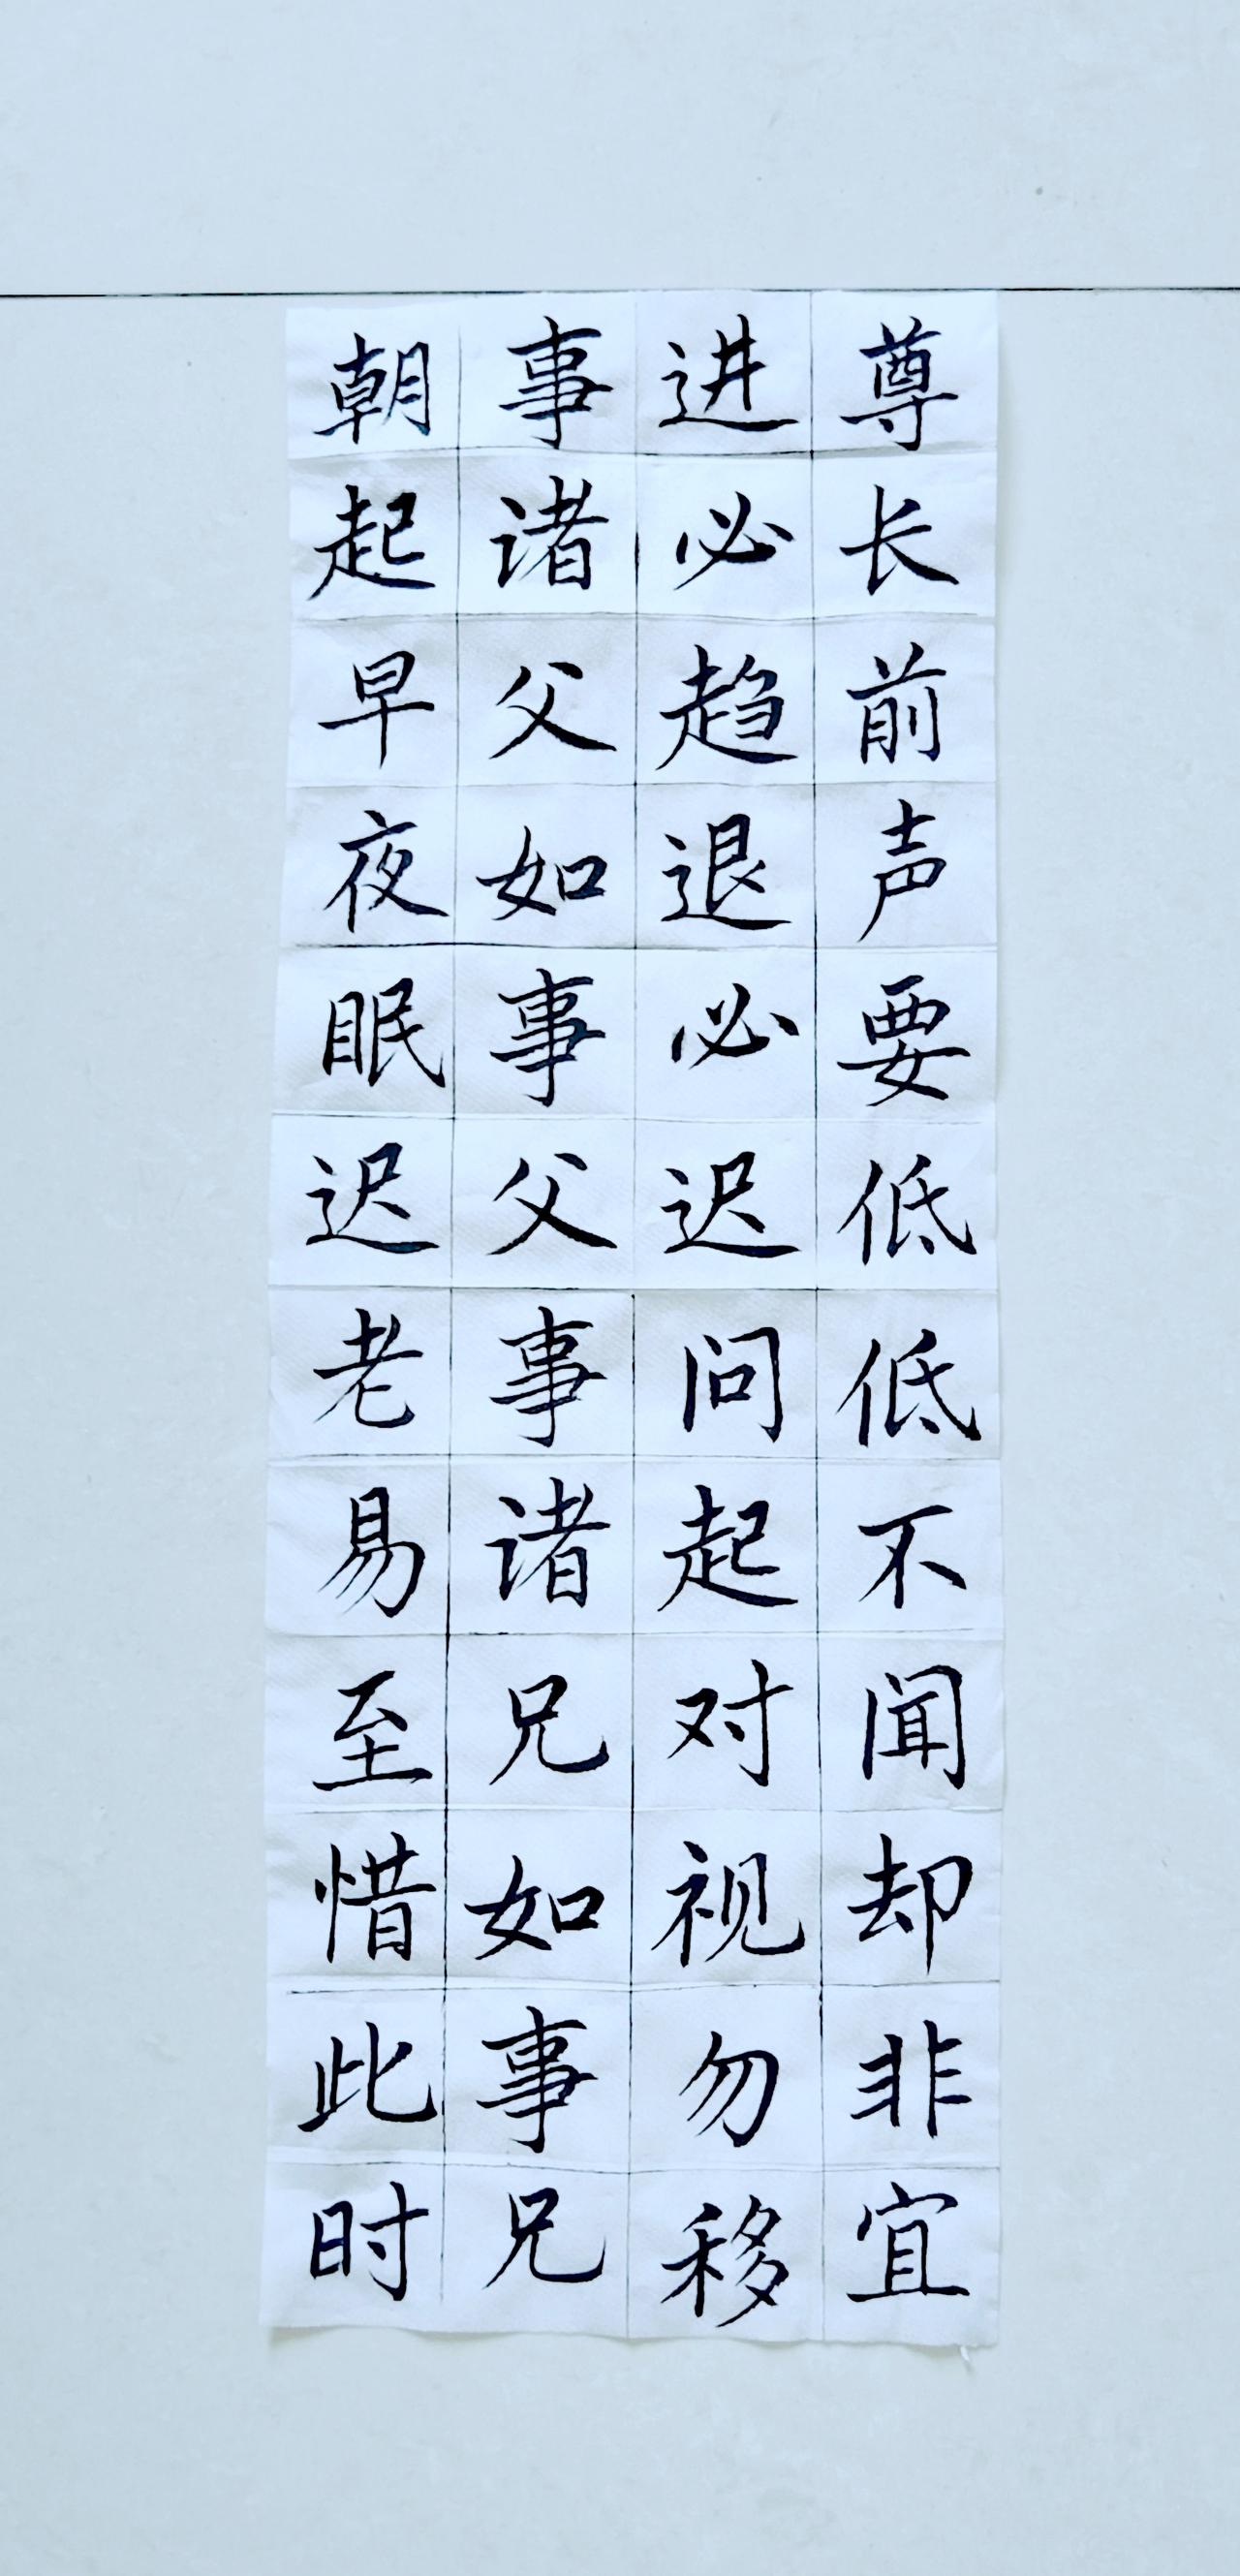 尊长前声要低低不闻却非宜
进必趋退必迟问起对视勿移
事诸父如事父事诸兄如事兄
朝起早夜眠迟老易至惜此时